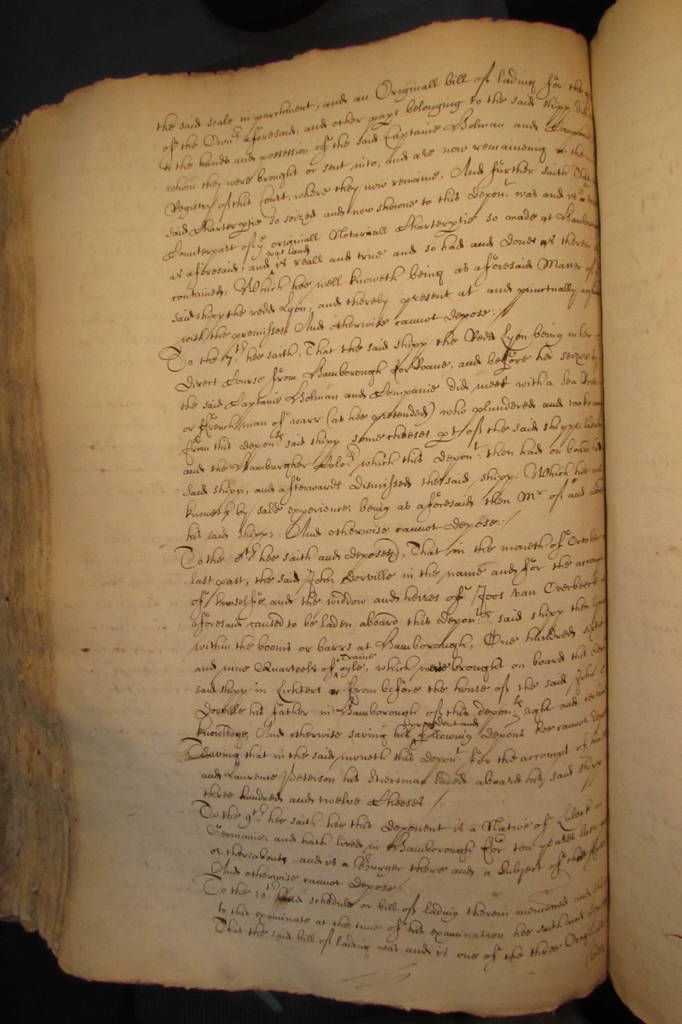 the said scale in parchment, and an Originall bill of lading for the
of the Own:rs aforesaid, and other pap:rs belonging to the said shipp
the hands and possession of the said Captaine Bolman and Companie
whom they were brought or sent into, and are now remaineing in the
Registry of this Court, where they now remaine, And further saith That
said Charterptie so seized and now showne to this depon:t was and is
Counterpart of ye originall Notariall Charterptie so made at Hamborough
as aforesaid, and was and is reall and true and so had and done as therein
contained, Which hee well knoweth being as aforesaid Master of
said shipp the redd Lyon, and thereby present at and
with the premisses And otherwise cannot depose./
To the 7:th hee saith, That the said shipp the Redd Lyon being in her
direct Course from Hamborough for Roane, and before her seizure
the said Captaine Bolman and Companie did meet with a
or Frenchman of warr (as hee pretended) who plundered and tooke
from this depon:ts said shipp some cheeses pt of the said shipps ladeing
and the Hamburgher which this depon:t then had on board
said shipp, and afterwards dismissed the said shipp. Which hee
knoweth by sadd experience, being as aforesaid then M:r of and
his said shipp. And otherwise cannot depose./
To the 8:th hee saith and deposeth, That in the moneth of October
last past, the said John Dorville in the name and for the accompt
of himselfe, and the widdow and heires of Joos van Overbeeke
aforesaid caused to be laden aboard this depon:ts said shipp then
within the booms or barrs at Hamborough, One hundred
and nine Quarteels of Traine oyle, which were brought on board this
said shipp in Lichters from before the house of the said John
Dorville his father in Hamborough of this depon:ts sight and certaine
knowledge, And otherwise saving his following depons hee cannot depose
Saving that in the said moneth this depon:t for the accompt of
and Laurence Peterson his Stierman laded aboard his said shipp
three hundred and twelve Cheeses./
To the 9:th hee saith hee this deponent is a Native of Lubeck in
Germanie, and hath lived in Hamborough for ten yeares last
or thereabouts, and is a Burger there and a Subject of
And otherwise cannot depose
To the 10:th schedule or bill of lading therein mentioned
to this examinate at the time of his examination hee saith
That the said bill of lading was and is one of the three